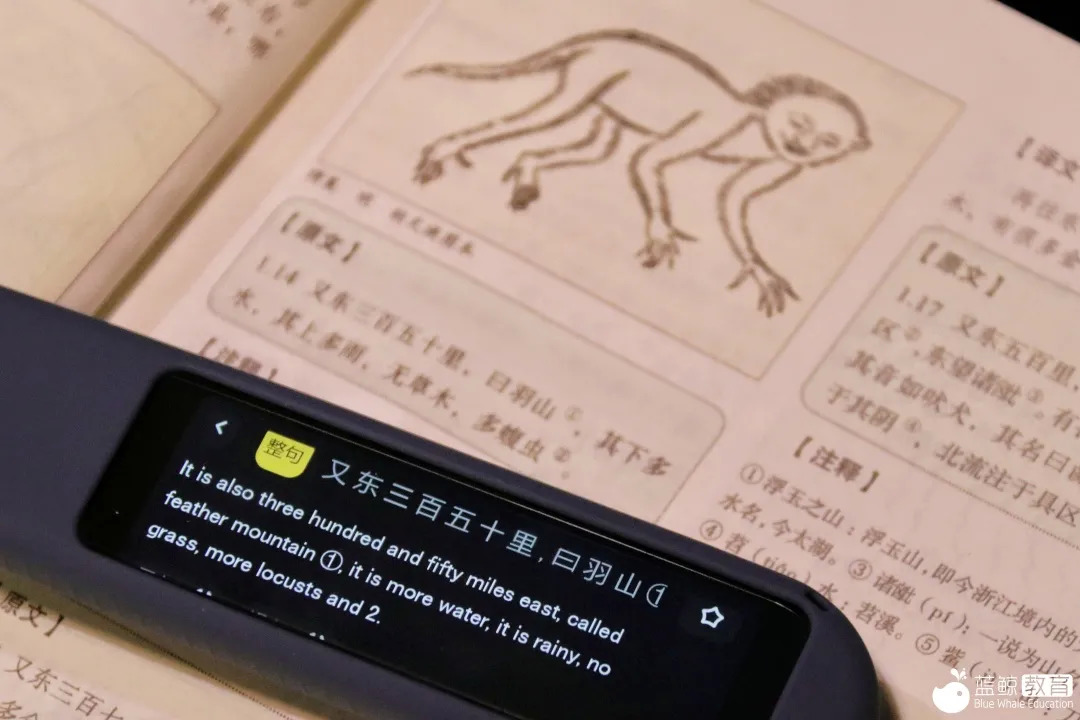 【原文】
1.14 又东三百五十里，曰羽山①，其下多
水，其上多雨，无草木，多蝮虫②。
【注释】
【译文
再往东
水，有很多金
【原文】
1.17 又东五百里，
区②，东望诸毗③。有
其音如吠犬，其名曰
于其阴④，北流注于具区
【注释】
①浮玉之山：浮玉山，即今浙江境内的
水名，今太湖。③诸毗（pí）：一说为山名
④苕（tiáo）水：苕溪。⑤
整句
又东三百五十里,曰羽山①
It is also three hundred and fifty miles east, called
feather mountain ①, it is more water, it is rainy, no
grass, more locusts and 2.
原文】
又东三百七十
蓝鲸教育
Blue Whale Education